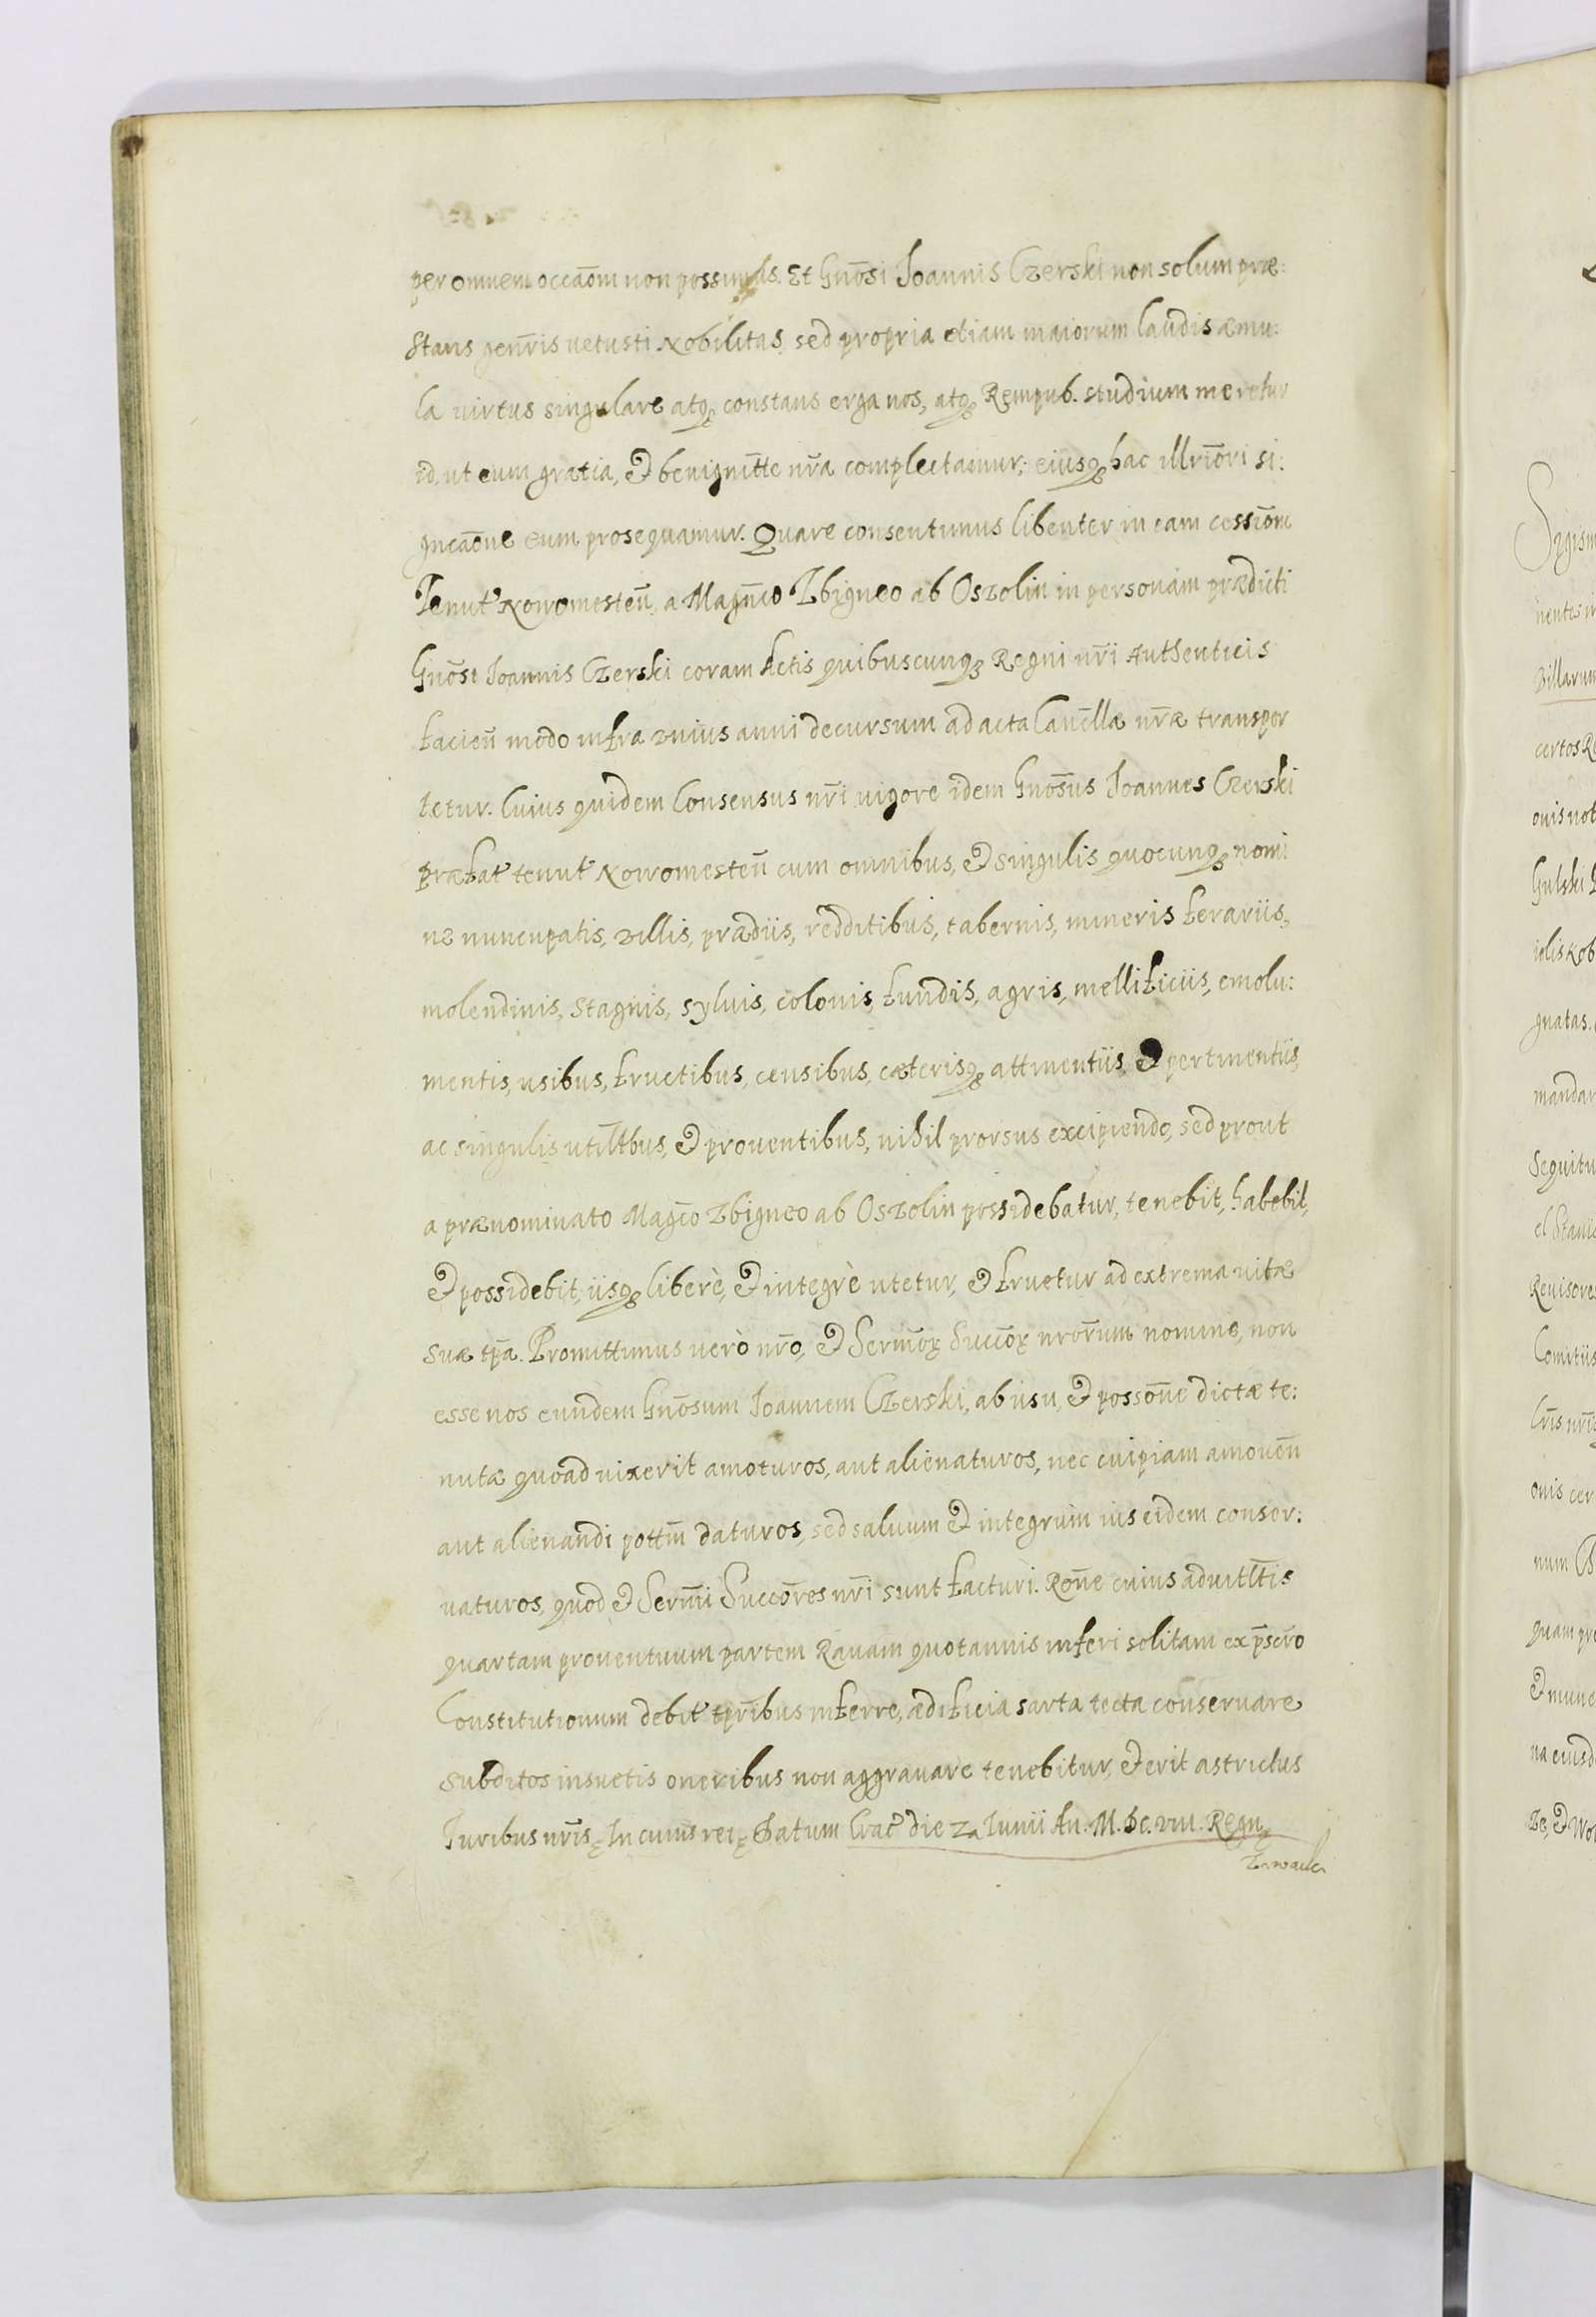 per omnem occãom non possimus. Et Gnõsi Joannis Czerski non solum præ:
stans gen̄ris vetusti Nobilitas, sed propria etiam maiorum laudis æmu:
la virtus singulare atq₃ constans erga nos, atq₃ Rempub. studium meretur
id, ut eum gratia, & benignitte nr̃a complectamur, eiusq₃ hac illriõri si:
gncãone eum prosequamur. Quare consentimus libenter in eam cessiõm
Tenut̃ Nowomesteñ, a Magn̄co Zbigneo ab Oszolin in personam prædicti
Gnõsi Joannis Czerski coram Actis quibuscunq₃ Regni nr̃i Authenticis
facień modo infra unius anni decursum ad acta Canc̃llæ nr̃æ transpor
tetur. Cuius quidem Consensus nr̃i vigore idem Gnõsus Joannes Czerski
præfat̃ tenut̃ Nowomesteñ cum omnibus, & singulis quocunq₃ nomi
ne nuncupatis, villis, prædiis, redditibus, tabernis, mineris ferariis,
molendinis, stagnis, sylvis, colonis, fundis, agris, mellificiis, emolu:
mentis, usibus, fructibus, censibus, cæterisq₃ attinentiis, & pertinentiis,
ac singulis utiltbus, & proventibus, nihil prorsus excipiendo, sed prout
a prænominato Magc̃o Zbigneo ab Oszolin possidebatur, tenebit, habebit,
& possidebit, iisq₃ liberè, & integrè utetur, & fruetur ad extrema vitæ
suæ tp̃a. Promittimus verò nr̃o, & Sermõꝝ Succõꝝ nrõrum nomine, non
esse nos eundem Gnõsum Joannem Czerski, ab usu, & possõne dictæ te:
nutæ quoad vixerit amoturos, aut alienaturos, nec cuipiam amoveñ
aut alienandi pottm̃ daturos, sed salvum & integrum ius eidem conser:
vaturos, quod & Sermĩ Succõres nr̃i sunt facturi. Rõne cuius advitltĩs
quartam proventuum partem Ravam quotannis inferi solitam ex p̃scr̃o
Constitutionum debit̃ tpr̃ibus inferre, ædificia sarta tecta conservare
subditos insuetis oneribus non aggravare tenebitur, & erit astrictus
Juribus nr̃is, In cuius rei, Datum Crac̃ die 2a Junii An. M. DC. VIII. Regn,